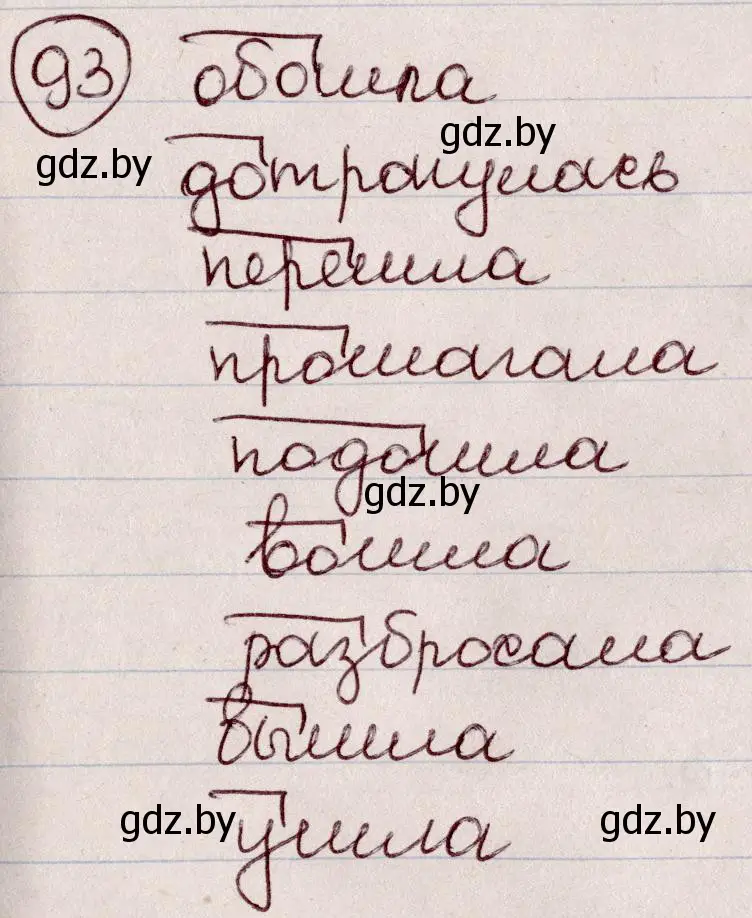 93 обошла
gdz.by
gdz.by дотронулась
перешла
прошагала
подошла
gdz.by
вошла
разбросала
вышла
gdz.by gdz.by
ушла